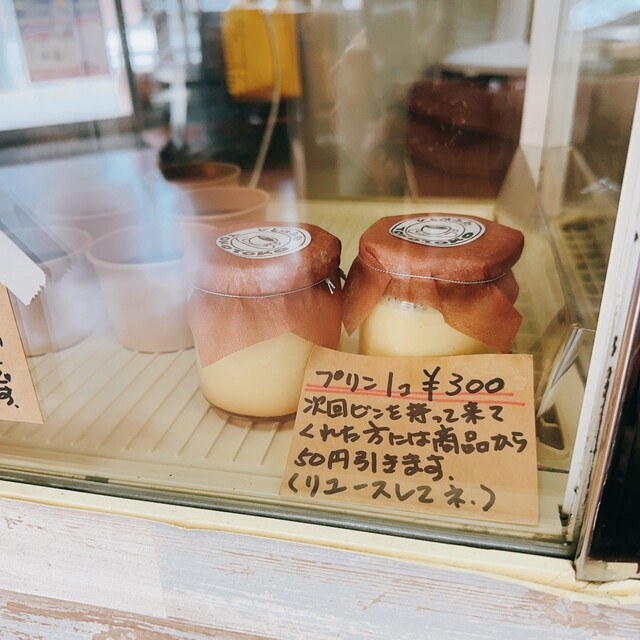 プリン1コ ¥300
次回ビンを持って来て
くれた方には商品から
50円引きます。
(リユースしてネ。)
す。